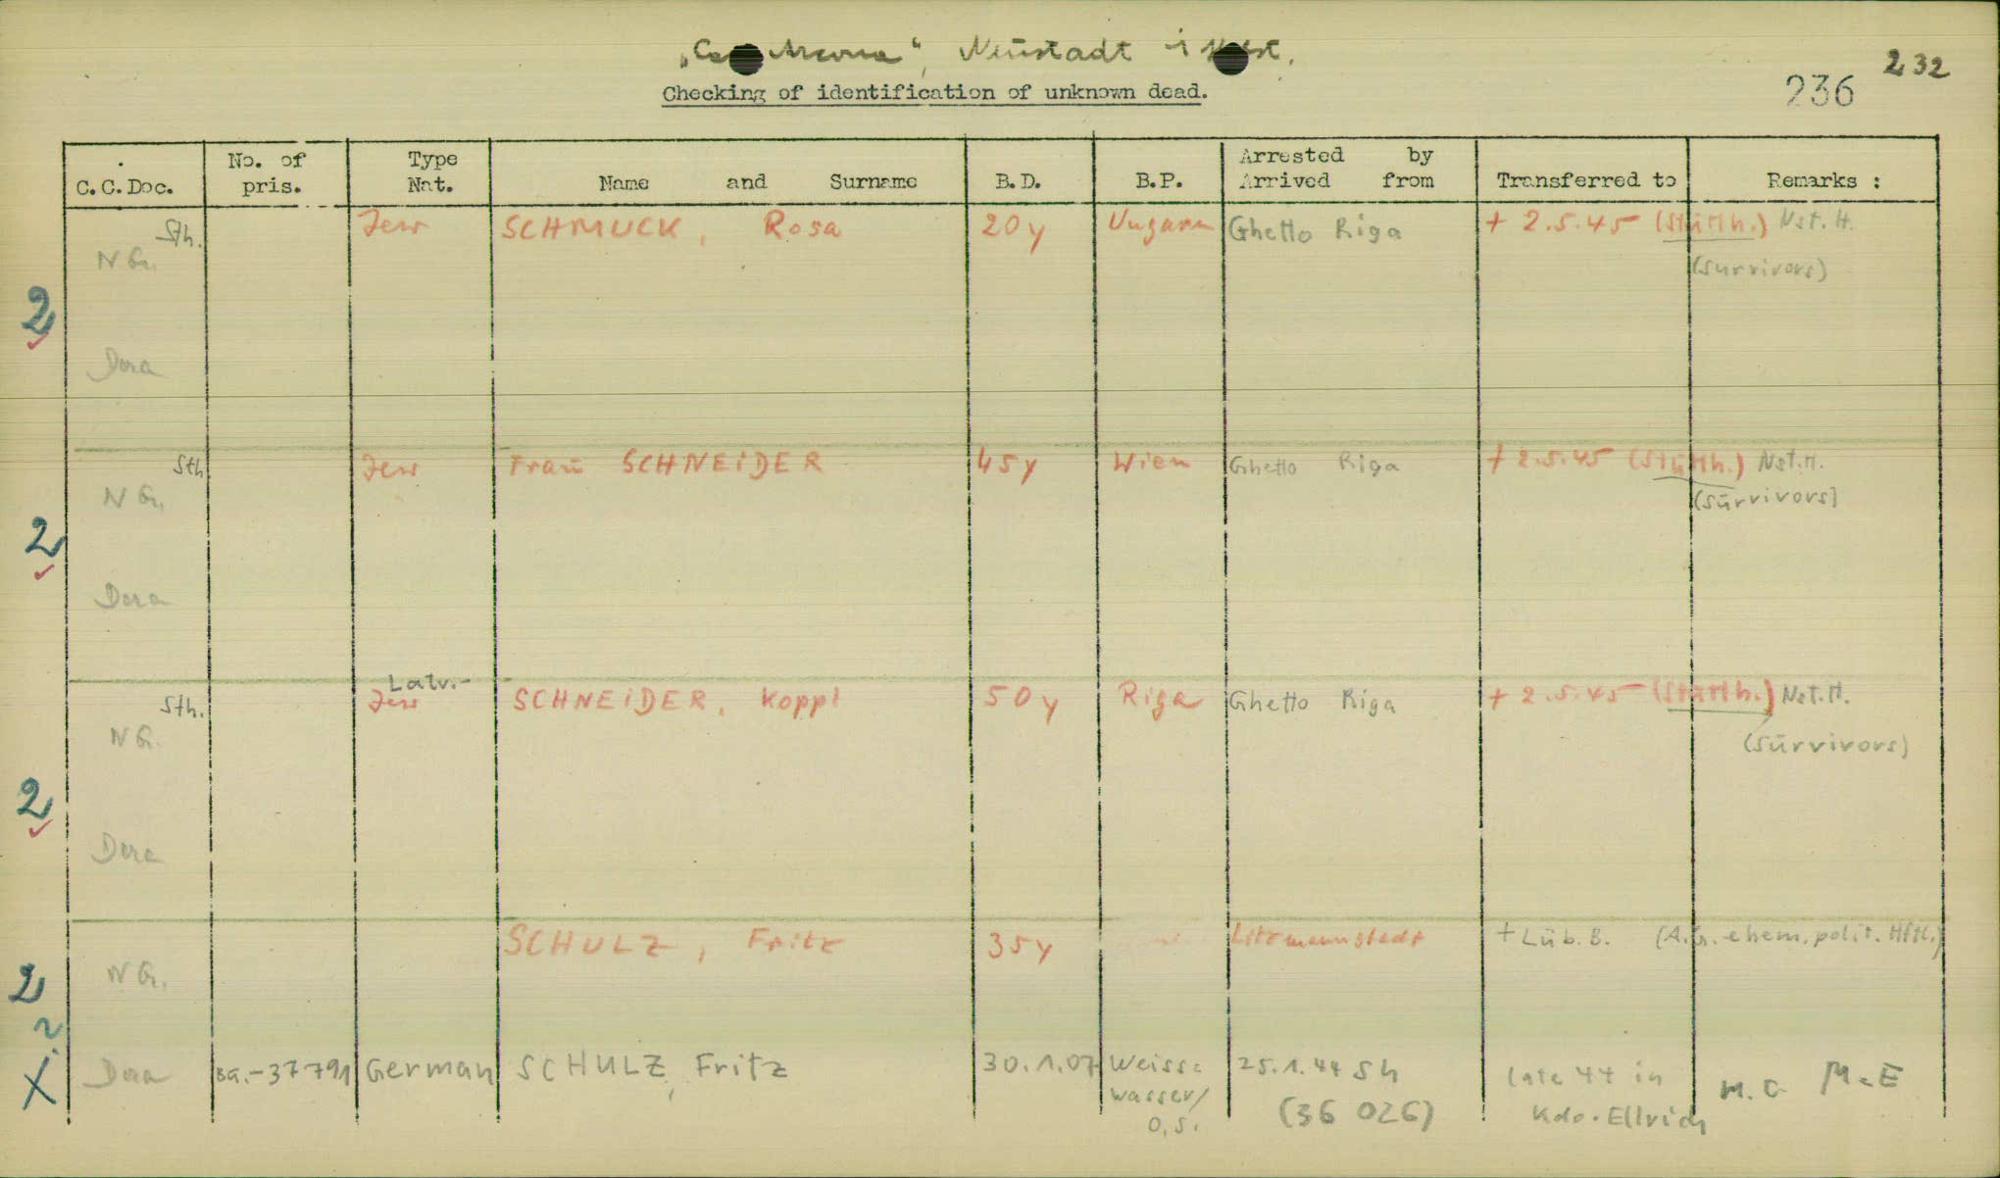 "Cap Arcona", Neustadt i Holst.
232
236
Checking of identification of unknown dead.
C.C.Doc. No. of pris. Type Nat. Name and Surname B.D. B.P. Arrested by Arrived from Transferred to Remarks :
Sth. Jew SCHMUCK, Rosa 20y Ungarn Ghetto Riga + 2.5.45 (Stutth.) Nst. H.
NG. (survivors)
2
Dora
Sth Jew Frau SCHNEIDER 45y Wien Ghetto Riga + 2.5.45 (Stutth.) Nst. H.
NG. (survivors)
2
Dora
Latv.-
Sth. Jew SCHNEIDER, Koppl 50y Riga Ghetto Riga + 2.5.45 (Stutth.) Nst. H.
NG. (survivors)
2
Dora
SCHULZ, Fritz 35y Litzmannstadt + Lüb. B. (A.G. ehem. polit. Hftl.)
NG.
2
?
X Dora 37791 German SCHULZ, Fritz 30.1.07 Weiss= 25.1.44 Sh late 44 in M.C M=E
wasser/ (36 026) Kdo. Ellrich
O.S.